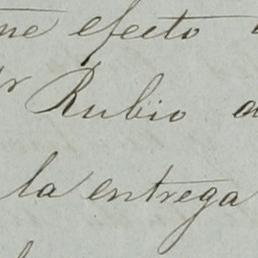 me efecto
Rubio
la entrega